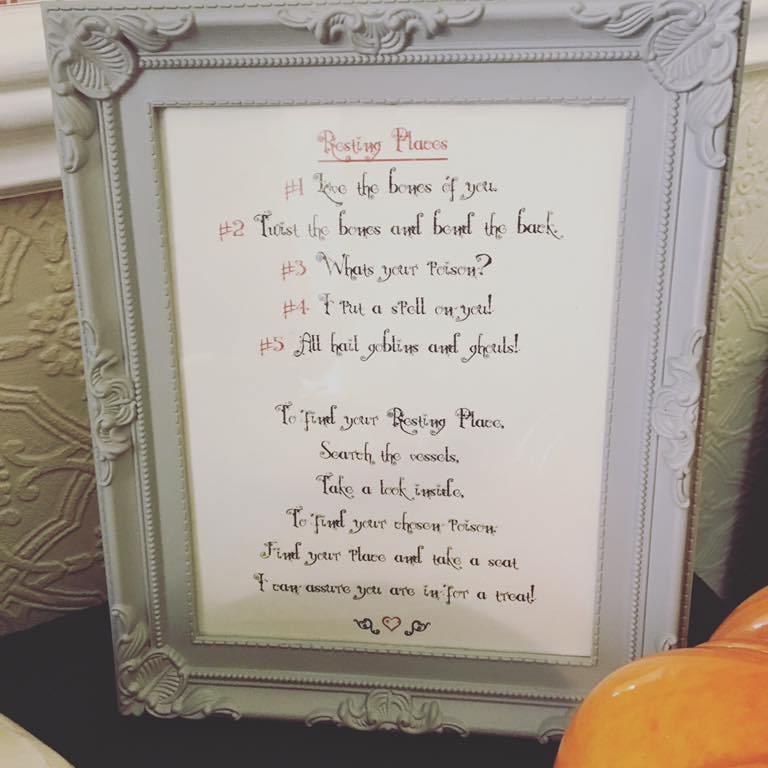 Resting Places
#1 Love the bones of you.
#2 Twist the bones and bend the back.
#3 Whats your Poison?
#4 I Put a spell on you!
#5 All hail goblins and ghouls!
To find your Resting Place,
Search the vessels,
Take a look inside,
To find your chosen Poison.
Find your Place and take a seat
I can assure you are in for a treat!